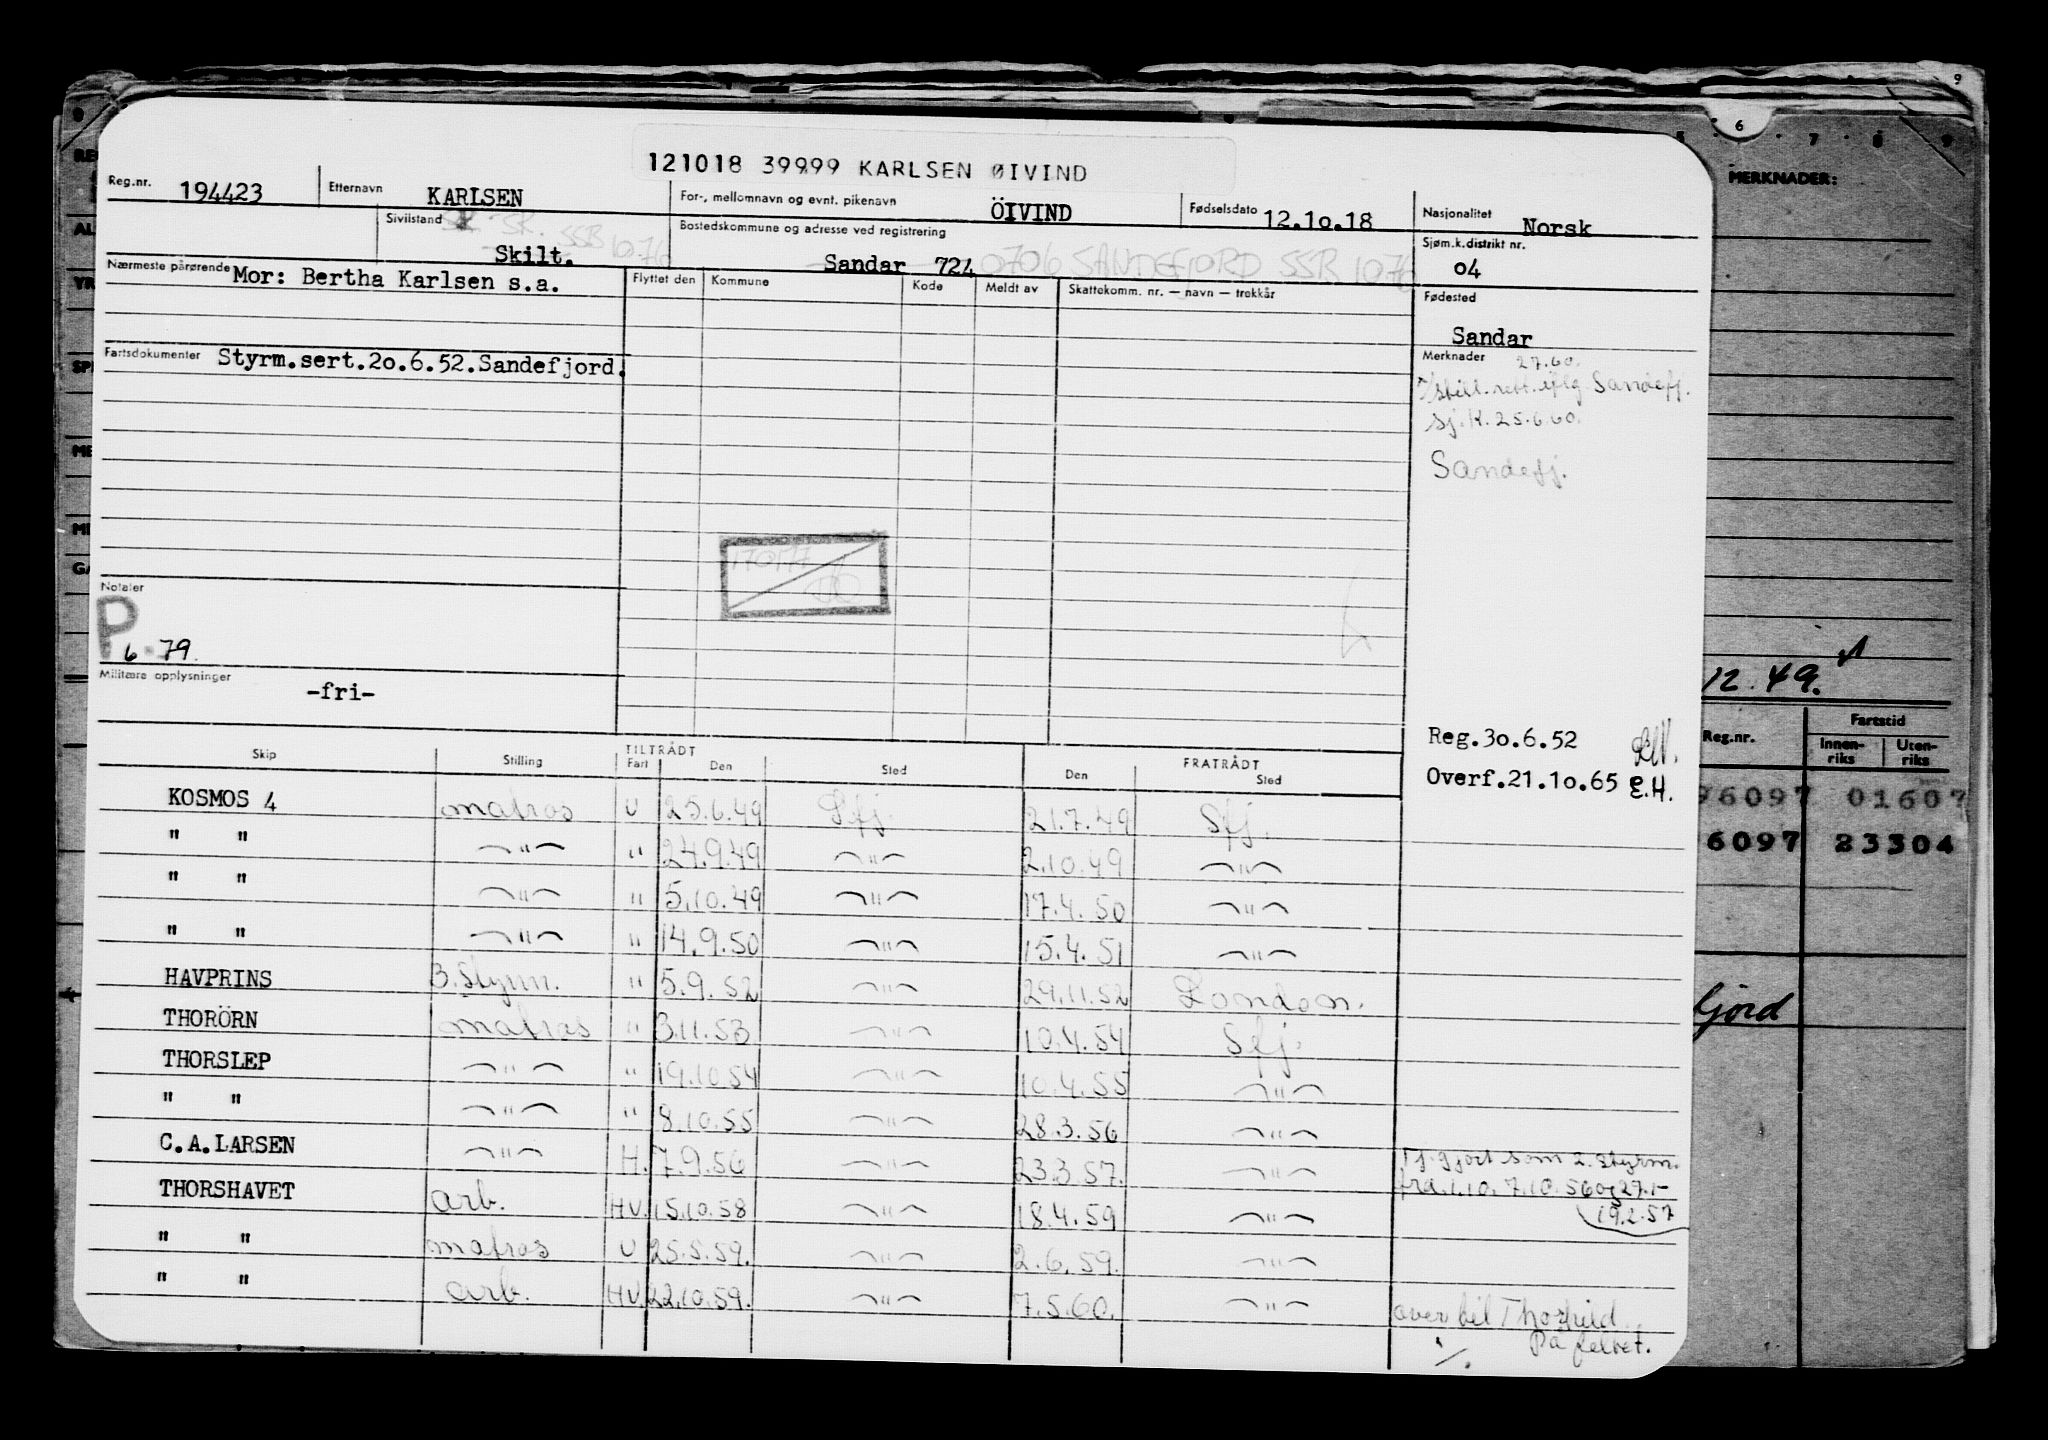 121018 39999 KARLSEN ØIVIND
Reg.nr. 194423 Etternavn KARLSEN For-, mellomnavn og evnt. pikenavn ÖIVIND Fødselsdato 12.1o.18 Nasjonalitet Norsk
Sivilstand Skilt. SSB 10.76 Bostedskommune og adresse ved registrering Sandar 724 0706 SANDEFJORD SSB 10.76 Sjøm.k.distrikt nr. o4
Nærmeste pårørende Mor: Bertha Karlsen s.a. Flyttet den Kommune Kode Meldt av Skattekomm. nr. — navn — trekkår Fødested
Sandar
Fartsdokumenter Styrm.sert.2o.6.52.Sandefjord. Merknader 27.60.
still. rett. iflg Sandefj.
Sj.K. 25.6.60.
Sandefj.
170177
Notater
P
6.79.
Militære opplysninger
-fri-
Reg.3o.6.52
Overf.21.1o.65 E.H.
Skip Stilling TILTRÅDT Fart Den Sted FRATRÅDT Den Sted
KOSMOS 4 matros U 25.6.49 Sfj. 21.7.49 Sfj.
" " —"— " 24.9.49 —"— 2.10.49 —"—
" " —"— " 5.10.49 —"— 17.4.50 —"—
" " —"— " 14.9.50 —"— 15.4.51 —"—
HAVPRINS 3.Styrm. " 5.9.52 —"— 29.11.52 London.
THORÖRN matros " 3.11.53 —"— 10.4.54 Sfj.
THORSLEP —"— " 19.10.54 —"— 10.4.55 —"—
" " —"— " 8.10.55 —"— 28.3.56 —"—
C.A.LARSEN —"— H. 7.9.56 —"— 23.3.57. —"— Tj.gjort som 2. styrm.
fra 1.10. 7.10.56 og 27.1-
19.2.57
THORSHAVET arb. HV. 15.10.58 —"— 18.4.59 —"—
" " matros U 25.5.59. —"— 2.6.59. —"—
" " arb. HV. 22.10.59. —"— 7.5.60. —"— over til Thorshild
På feltet.
·/.
5 6 7 8 9
9
MERKNADER:
12.49.
Reg.nr. Fartstid
Innen-riks Uten-riks
96097 01607
6097 23304
fjord